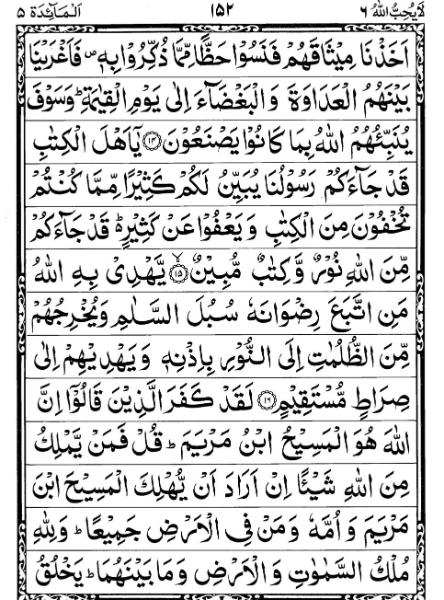 لَا يُحِبُّ اللهُ ٦ ١٥٢ اَلْمَآئِدَة ٥
اَخَذْنَا مِيْثَاقَهُمْ فَنَسُوْا حَظًّا مِّمَّا ذُكِّرُوْا بِهٖ ۪ فَاَغْرَيْنَا
بَيْنَهُمُ الْعَدَاوَةَ وَ الْبَغْضَآءَ اِلٰى يَوْمِ الْقِيٰمَةِ ؕ وَسَوْفَ
يُنَبِّئُهُمُ اللهُ بِمَا كَانُوْا يَصْنَعُوْنَ ﴿١٤﴾ يٰۤاَهْلَ الْكِتٰبِ
قَدْ جَآءَكُمْ رَسُوْلُنَا يُبَيِّنُ لَكُمْ كَثِيْرًا مِّمَّا كُنْتُمْ
تُخْفُوْنَ مِنَ الْكِتٰبِ وَ يَعْفُوْا عَنْ كَثِيْرٍ ؕ قَدْ جَآءَكُمْ
مِّنَ اللهِ نُوْرٌ وَّ كِتٰبٌ مُّبِيْنٌ ﴿١٥﴾ يَّهْدِيْ بِهِ اللهُ
مَنِ اتَّبَعَ رِضْوَانَهٗ سُبُلَ السَّلٰمِ وَيُخْرِجُهُمْ
مِّنَ الظُّلُمٰتِ اِلَى النُّوْرِ بِاِذْنِهٖ وَيَهْدِيْهِمْ اِلٰى
صِرَاطٍ مُّسْتَقِيْمٍ ﴿١٦﴾ لَقَدْ كَفَرَ الَّذِيْنَ قَالُوْۤا اِنَّ
اللهَ هُوَ الْمَسِيْحُ ابْنُ مَرْيَمَ ؕ قُلْ فَمَنْ يَّمْلِكُ
مِنَ اللهِ شَيْـًٔا اِنْ اَرَادَ اَنْ يُّهْلِكَ الْمَسِيْحَ ابْنَ
مَرْيَمَ وَ اُمَّهٗ وَ مَنْ فِى الْاَرْضِ جَمِيْعًا ؕ وَلِلّٰهِ
مُلْكُ السَّمٰوٰتِ وَ الْاَرْضِ وَ مَا بَيْنَهُمَا ؕ يَخْلُقُ